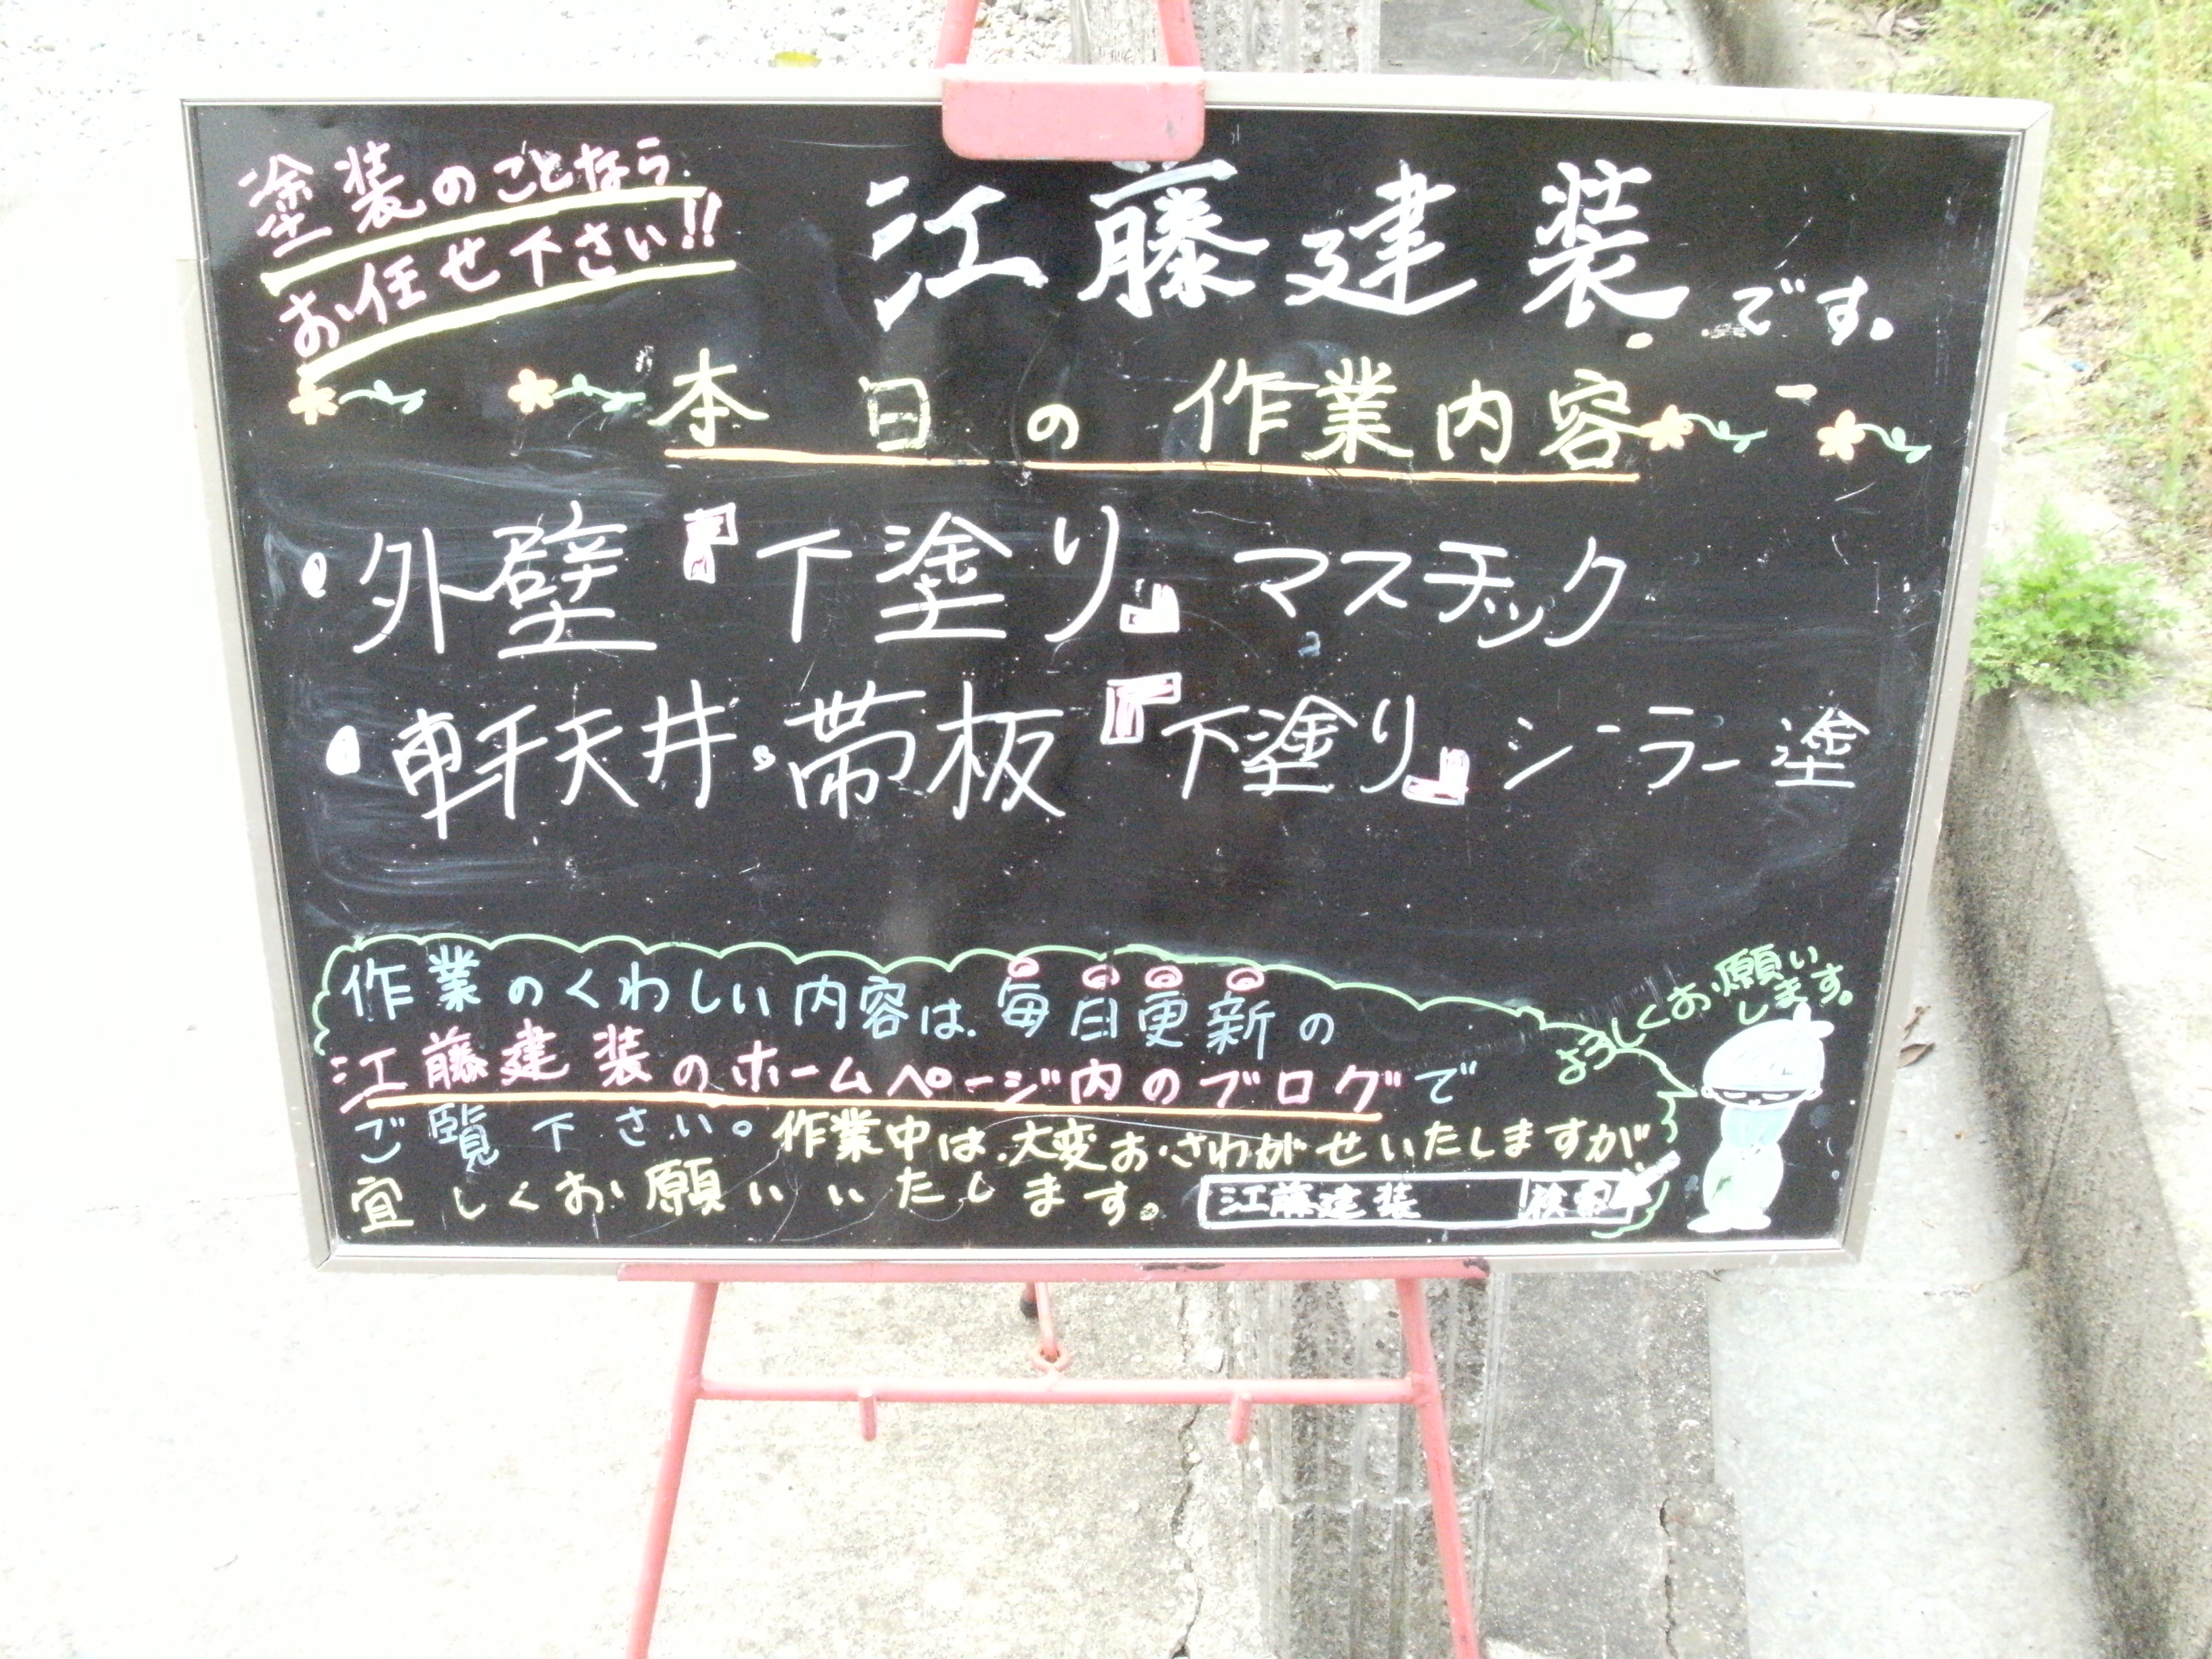 塗装のことなら
お任せ下さい!!
江藤建装です。
本日の作業内容
・外壁『下塗り』マスチック
・軒天井・帯板『下塗り』シーラー塗
作業のくわしい内容は毎日更新の
江藤建装のホームページ内のブログで
ご覧下さい。作業中は、大変おさわがせいたしますが
宜しくお願いいたします。
江藤建装 検索
よろしくお願い
します。